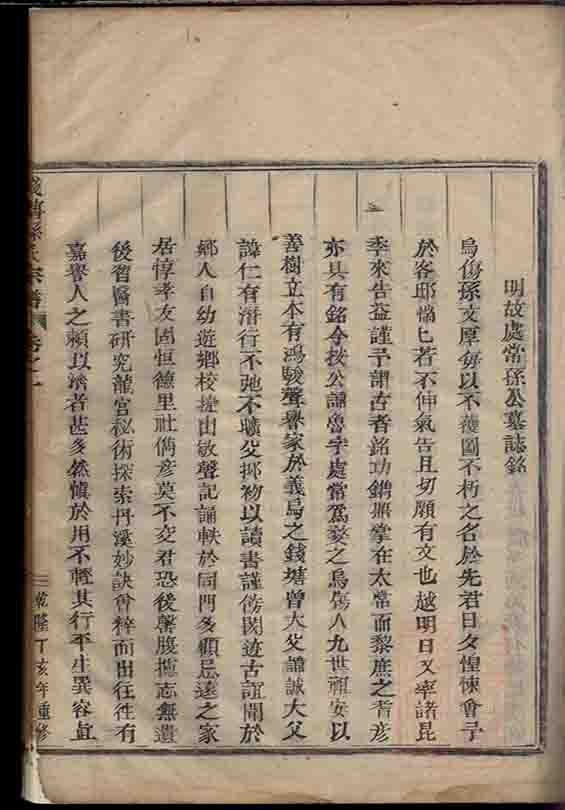 明故處常孫公墓誌銘
烏傷孫文厚每以不獲圖不朽之名於先君日夕惶悚會予
於客邸惴匕若不伸氣告且切願有文也越明日又率諸昆
季來告益謹予謂古者銘功鐫鼎掌在太常而黎庶之耆彥
亦具有銘今按公諱魯字處常為婺之烏傷人九世祖安以
善樹立本有鴻駿聲譽家於義烏之錢塘曾大父諱誠大父
諱仁有潛行不弛不曠父抑物以讀書謹飭閎遊古誼聞於
鄉人自幼遊鄉校捷出敏聲記誦軼於同門多顧忌遠之家
居惇孝友固恒德里社儁彥莫不交君恐後馨膄攄志無遺
後習醫書研究龍宮秘術探索丹溪妙訣會稡而出往往有
嘉譽人之賴以濟者甚多然慎於用不輕其行平生異容貞
孫氏宗譜 卷之一
三 乾隆丁亥年重修